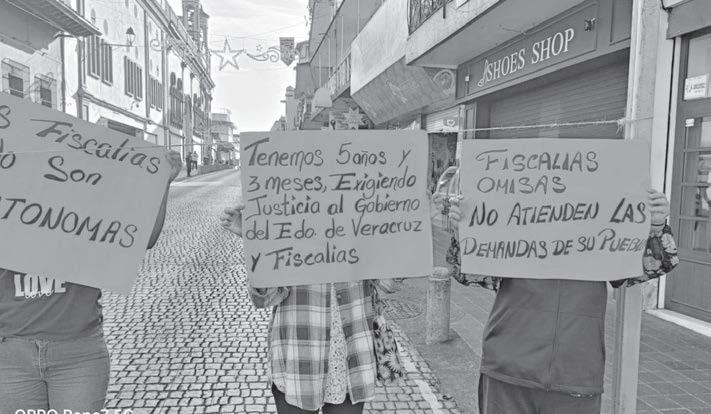 Fiscalias
Son
TONOMAS
LOVE
Tenemos 5 años y
3 meses, Exigiendo
Justicia al Gobierno
del Edo. de Veracruz
y Fiscalias
SHOES SHOP
FISCALIAS
OMISAS
NO ATIENDEN LAS
DEMANDAS DE SU PUEBLO